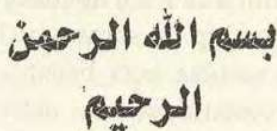 بسم الله الرحمن
الرحيم